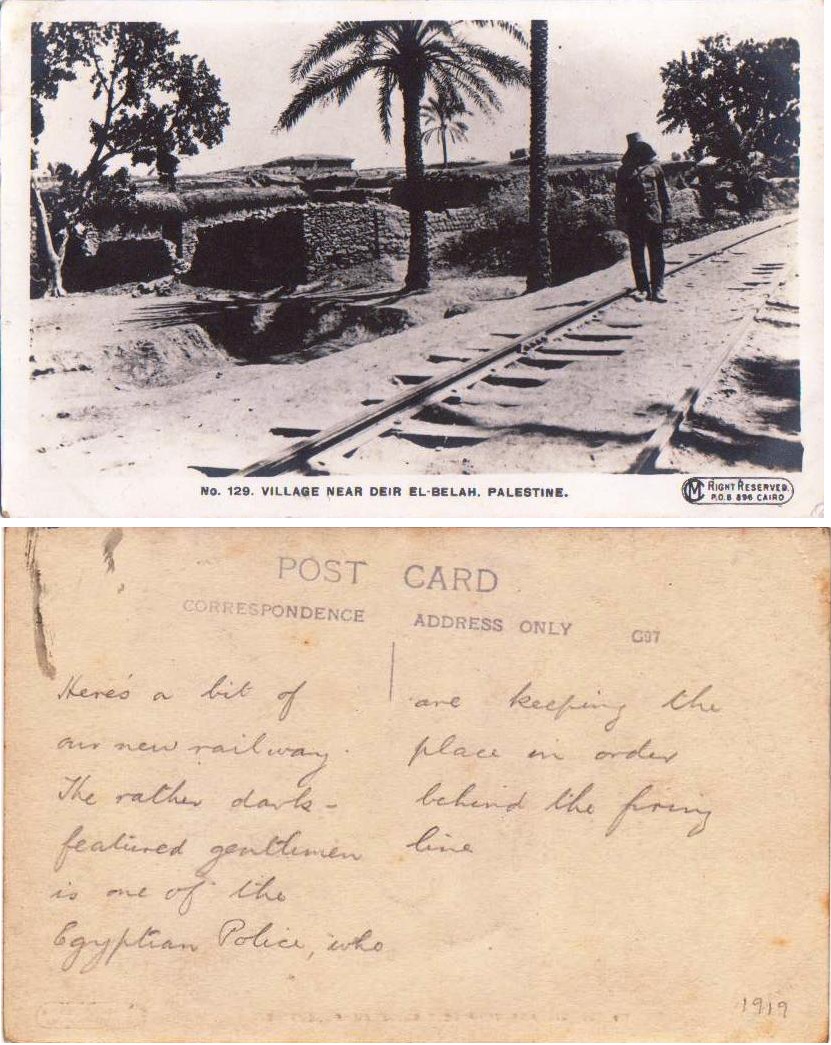 No. 129. VILLAGE NEAR DEIR EL-BELAH. PALESTINE.
MC RIGHT RESERVED.
P.O.B 896 CAIRO
POST CARD
CORRESPONDENCE ADDRESS ONLY G97
Here's a bit of
our new railway.
The rather dark-
featured gentlemen
is one of the
Egyptian Police, who
are keeping the
place in order
behind the firing
line
1919